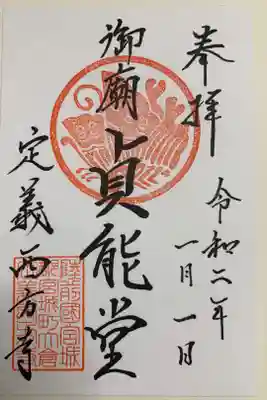 奉拝
令和二年
一月一日
御廟
貞能堂
定義西方寺